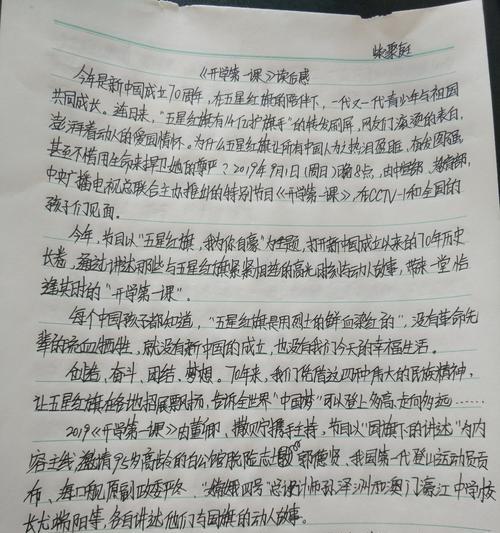 《开学第一课》读后感
今年是新中国成立70周年，在五星红旗的陪伴下，一代又一代青少年与祖国
共同成长。连日来，"五星红旗有14亿护旗手"的转发刷屏，网友们滚烫的表白，
澎湃着动人的爱国情怀。为什么五星红旗让所有中国人为之热泪盈眶、奋发图强，
甚至不惜用生命来捍卫她的尊严？2019年9月1日（周日）晚8点，由中宣部、教育部、
中央广播电视总联合主办推出的特别节目《开学第一课》，在CCTV-1和全国的
孩子们见面。
今年，节目以"五星红旗，我为你自豪"为主题，打开新中国成立以来的70年历史
长卷，通过讲述那些与五星红旗紧紧相连的高光时刻与动人故事，带来一堂恰
逢其时的"开学第一课"。
每个中国孩子都知道，"五星红旗是用烈士的鲜血染红的"，没有革命先
辈的流血牺牲，就没有新中国的成立，也没有我们今天的幸福生活。
创造、奋斗、团结、梦想。70年来，我们凭借这四种伟大的民族精神，
让五星红旗在各地招展飘扬，告诉全世界"中国梦"可以登上多高、走向多远……
2019《开学第一课》由董卿、撒贝宁携手主持，节目以"国旗下的讲述"为内
容主线，邀请95岁高龄的白公馆脱险志士郭德贤、我国第一代登山运动员贡
布、海口舰原副政委严冬、"嫦娥四号"总设计师孙泽洲和澳门濠江中学校
长尤端阳等，各自讲述他们与国旗的动人故事。